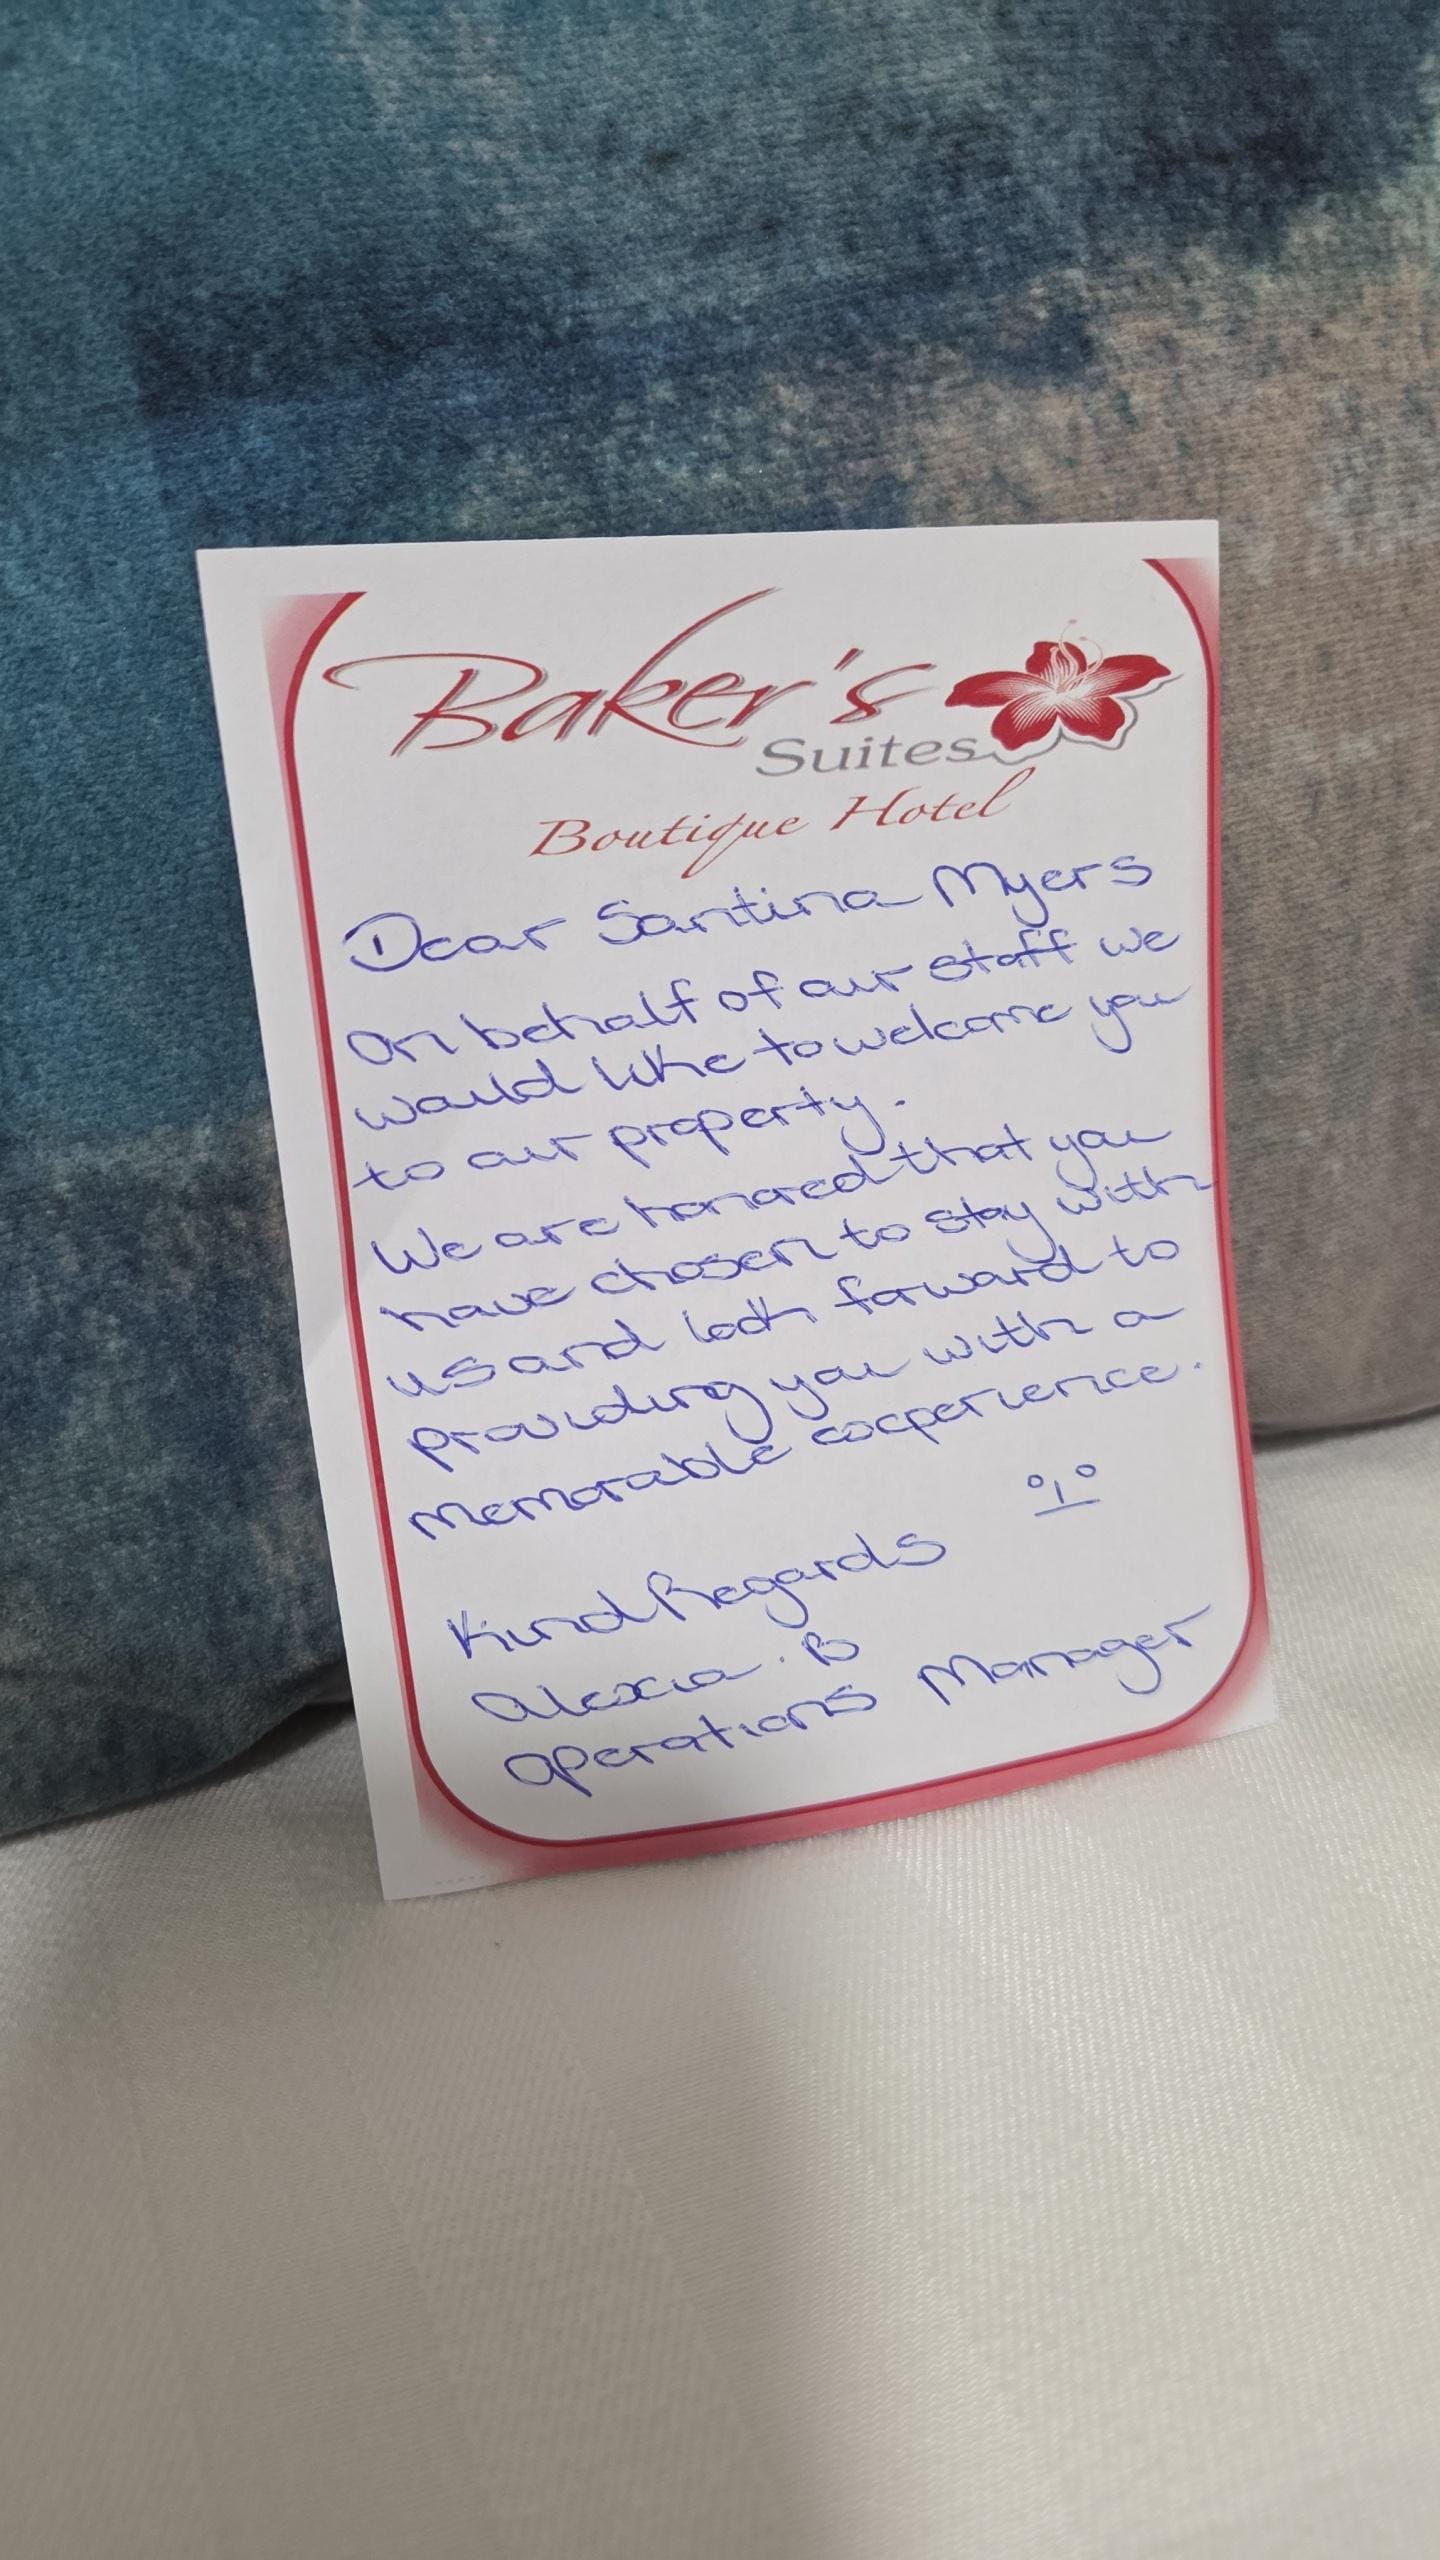 Baker's
Suites
Boutique Hotel
Dear Santina Myers
On behalf of our staff we
would like to welcome you
to our property.
We are honored that you
have chosen to stay with
us and look forward to
providing you with a
memorable experience.
Kind Regards
Alexia. B
Operations Manager